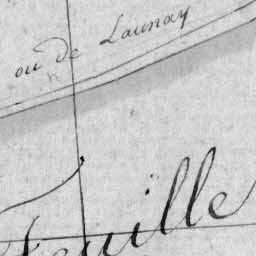 ou de Launay
Feuille